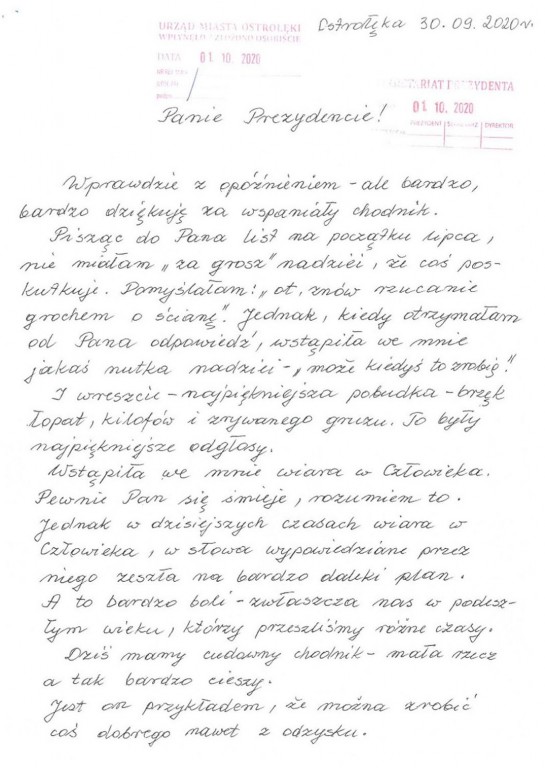 Ostrołęka 30.09.2020r.
URZĄD MIASTA OSTROŁĘKI
WPŁYNĘŁO / ZŁOŻONO OSOBIŚCIE
DATA 01 10. 2020
PREZYDENTA
01 10. 2020
Panie Prezydencie!
Wprawdzie z opóźnieniem - ale bardzo,
bardzo dziękuję za wspaniały chodnik.
Pisząc do Pana list na początku lipca,
nie miałam „za grosz" nadziei, że coś pos-
kutkuje. Pomyślałam: „ot, znów rzucanie
grochem o ścianę". Jednak, kiedy otrzymałam
od Pana odpowiedź, wstąpiła we mnie
jakaś nutka nadziei - „może kiedyś to zrobię!"
I wreszcie - najpiękniejsza pobudka - brzęk
łopat, kilofów i zrywanego gruzu. To były
najpiękniejsze odgłosy.
Wstąpiła we mnie wiara w Człowieka.
Pewnie Pan się śmieje, rozumiem to.
Jednak w dzisiejszych czasach wiara w
Człowieka, w słowa wypowiedziane przez
niego zeszła na bardzo daleki plan.
A to bardzo boli - zwłaszcza nas w podesz-
łym wieku, którzy przeszliśmy różne czasy.
Dziś mamy cudowny chodnik - mała rzecz
a tak bardzo cieszy.
Jest on przykładem, że można zrobić
coś dobrego nawet z odzysku.